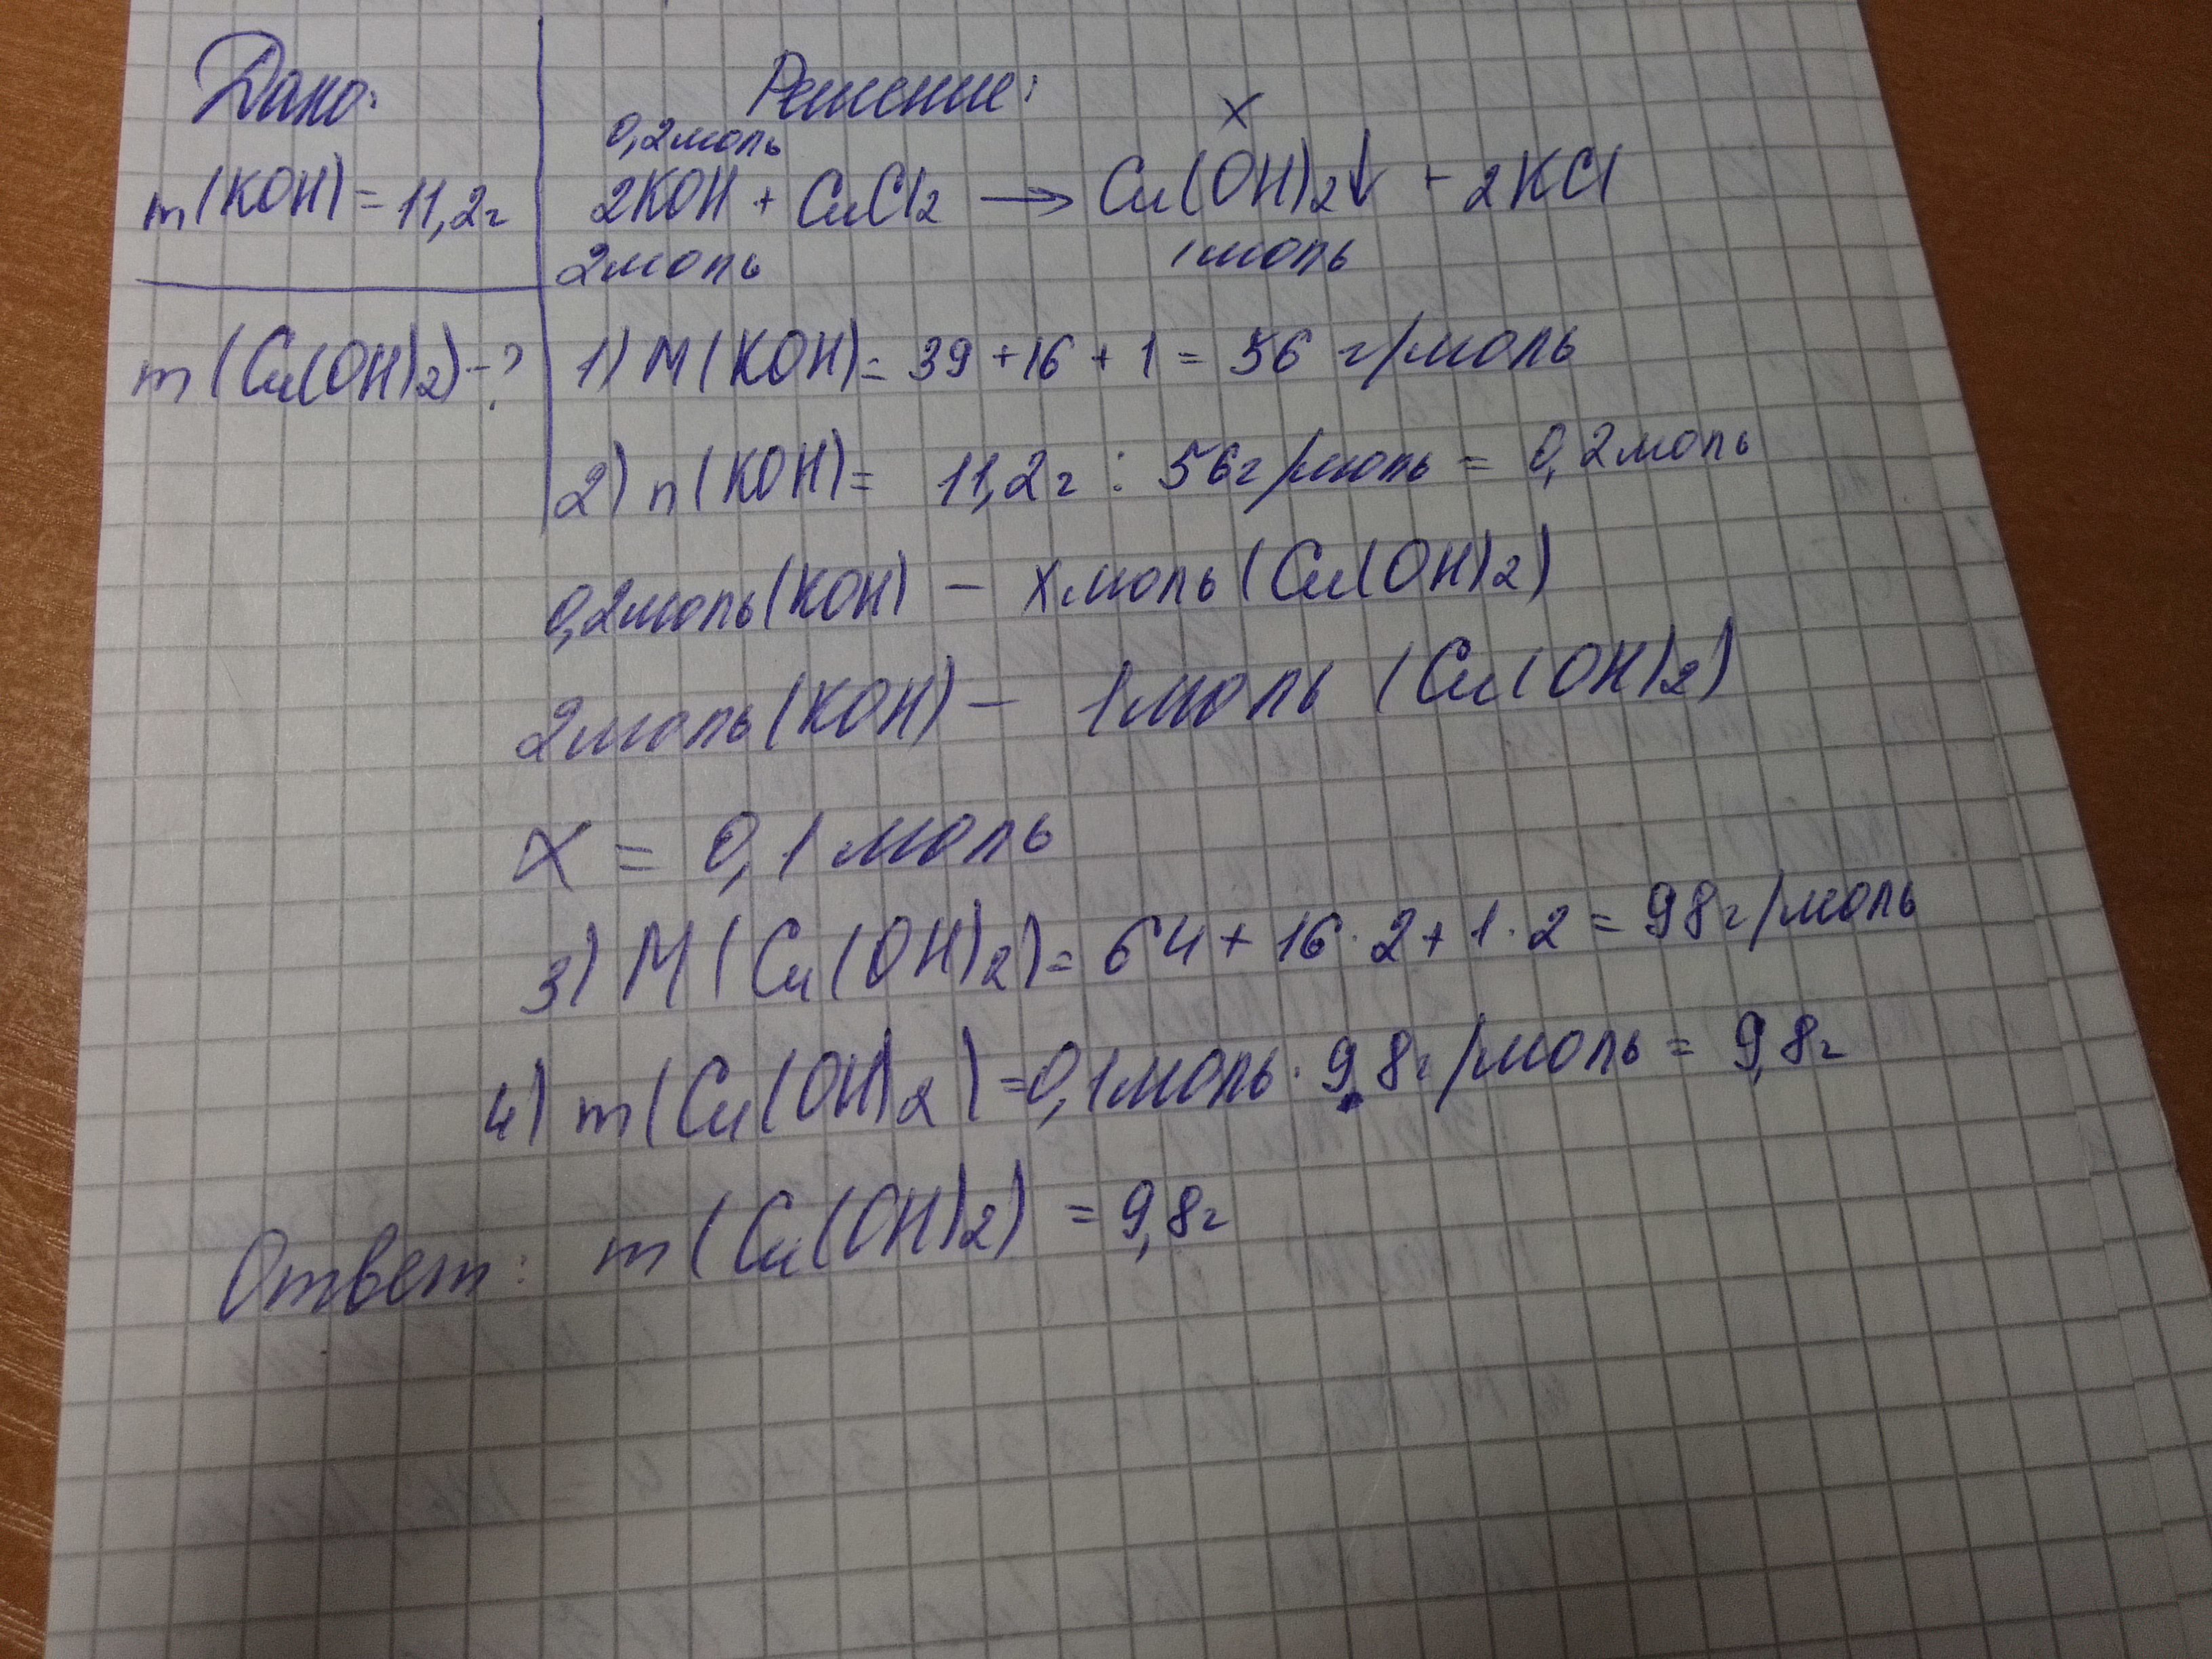 Дано:
m(KOH) = 11,2г
m(Cu(OH)2) - ?
Решение:
0,2моль
X
2KOH + CuCl2 → Cu(OH)2↓ + 2KCl
2моль
1моль
1) M(KOH) = 39 + 16 + 1 = 56 г/моль
2) n(KOH) = 11,2г : 56г/моль = 0,2моль
0,2моль(KOH) - Xмоль(Cu(OH)2)
2моль(KOH) - 1моль (Cu(OH)2)
X = 0,1моль
3) M(Cu(OH)2) = 64 + 16·2 + 1·2 = 98г/моль
4) m(Cu(OH)2) = 0,1моль · 98г/моль = 9,8г
Ответ: m(Cu(OH)2) = 9,8г